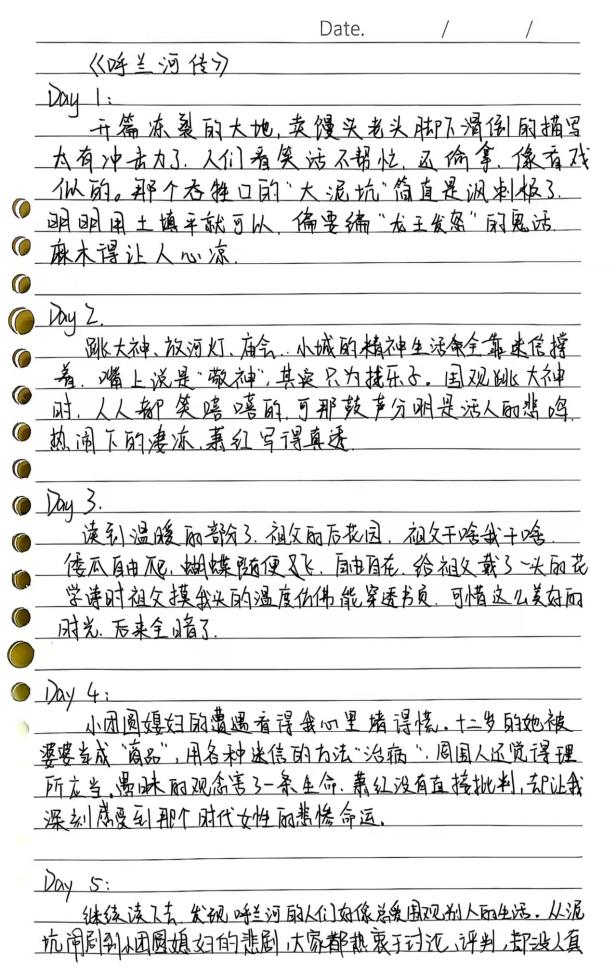 Date. / /
《呼兰河传》
Day 1:
开篇冻裂的大地,卖馒头老头脚下滑倒的描写
太有冲击力了.人们看笑话不帮忙.还偷拿.像看戏
似的。那个吞牲口的"大泥坑"简直是讽刺极了.
明明用土填平就可以,偏要编"龙王发怒"的鬼话.
麻木得让人心凉.
Day 2.
跳大神、放河灯、庙会..小城的精神生活全靠迷信撑
着.嘴上说是"敬神",其实只为找乐子。围观跳大神
时,人人都笑嘻嘻的,可那鼓声分明是活人的悲鸣.
热闹下的凄凉,萧红写得真透.
Day 3.
读到温暖的部分了.祖父的后花园,祖父干啥我干啥.
倭瓜自由爬,蝴蝶随便飞,自由自在.给祖父戴了一头的花
学诗时祖父摸我头的温度仿佛能穿透书页.可惜这么美好的
时光.后来全暗了.
Day 4:
小团圆媳妇的遭遇看得我心里堵得慌.十二岁的她被
婆婆当成"商品",用各种迷信的方法"治病".周围人还觉得理
所应当.愚昧的观念害了一条生命.萧红没有直接批判,却让我
深刻感受到那个时代女性的悲惨命运.
Day 5:
继续读下去.发现呼兰河的人们好像总爱围观别人的生活.从泥
坑闹剧到小团圆媳妇的悲剧,大家都热衷于讨论,评判,却没人真